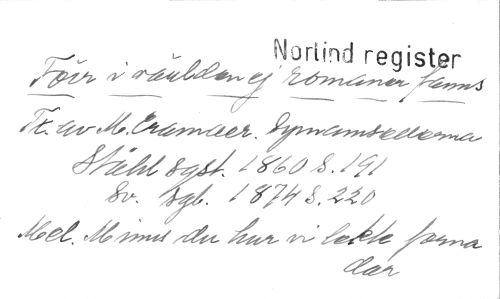 Norlind register
Förr i världen ej romaner fanns
Tr. av M. Cramær. Symamsellerna
Ståhl sgst. 1860 S. 191
Sv. sgb. 1874 S. 220
Mel. Minns du hur vi lekte forna
dar